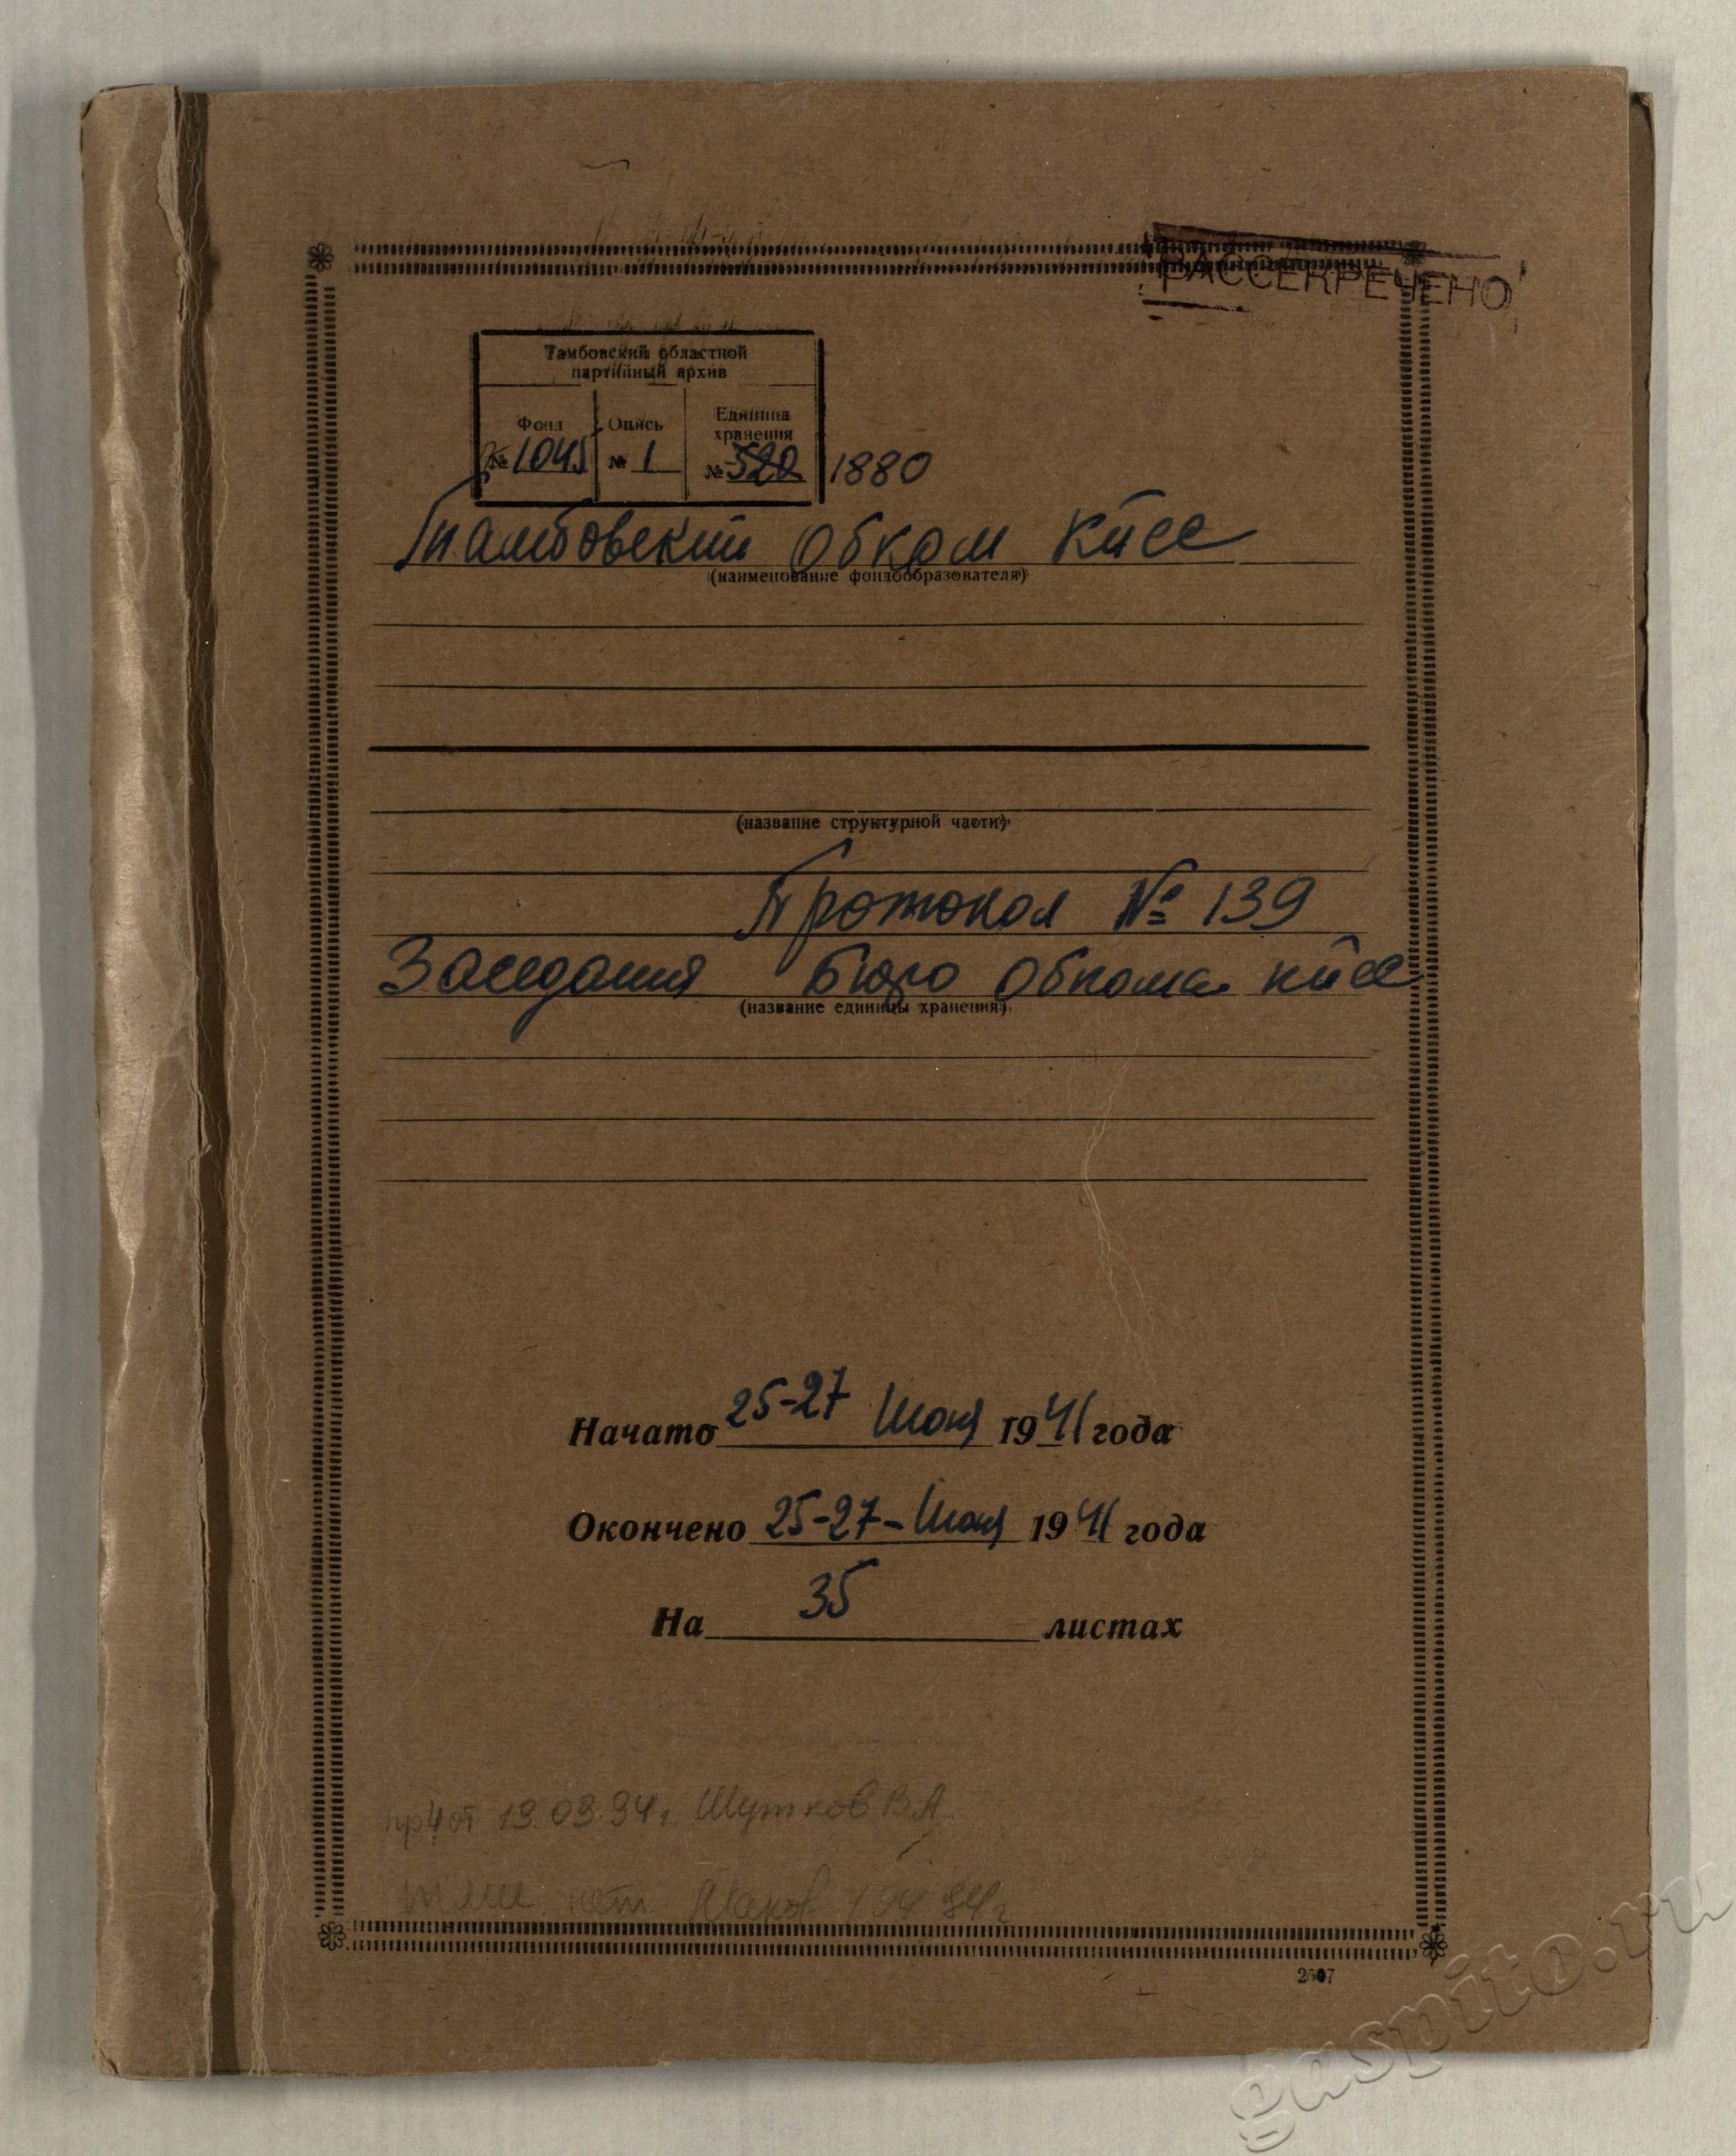 РАССЕКРЕЧЕНО
Тамбовский областной
партийный архив
Фонд Опись Единица
хранения
№ 1045 № 1 № 520 1880
Тамбовский Обком КПСС
(наименование фондообразователя)
(название структурной части)
Протокол № 139
Заседания Бюро Обкома КПСС
(название единицы хранения)
Начато 25-27 Июня 1941 года
Окончено 25-27 - Июня 1941 года
На 35 листах
от 19.03.94г Шутков ВА
нет 94г
2607
gaspito.ru